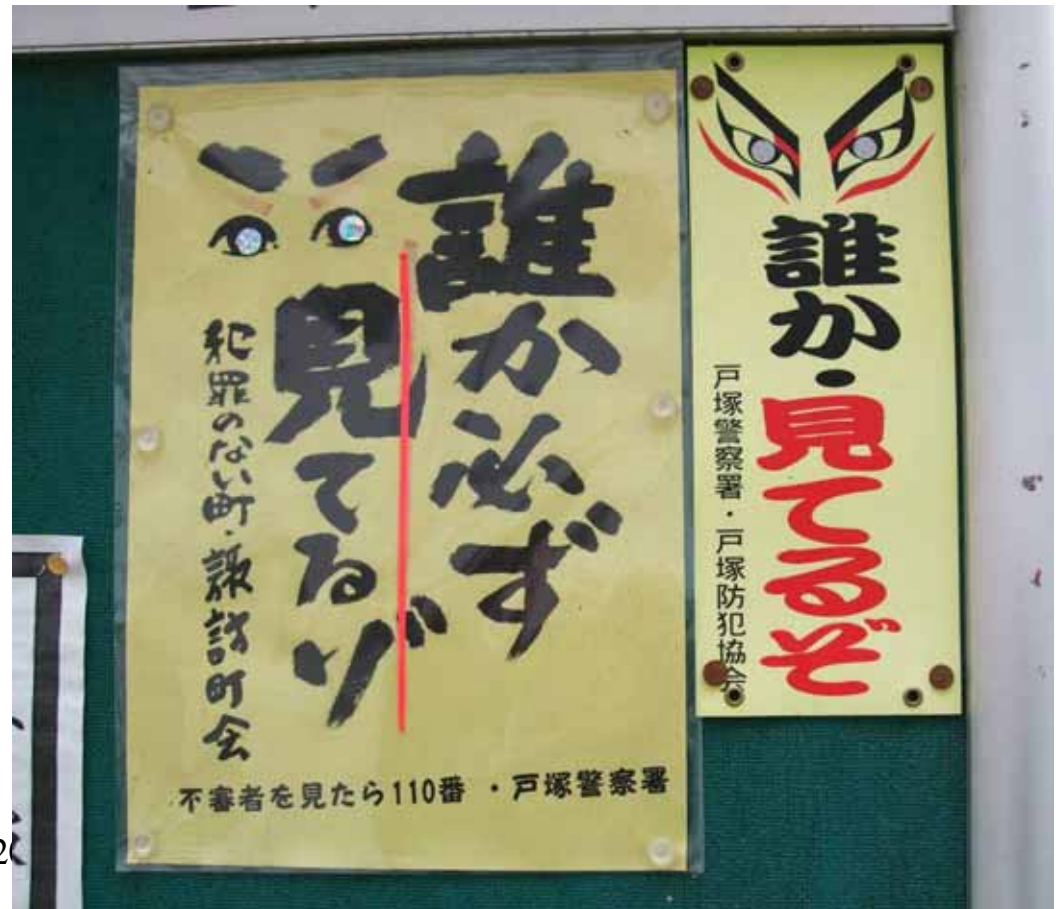 誰か必ず
見てるゾ
犯罪のない町・諏訪町会
不審者を見たら110番・戸塚警察署
誰か・見てるぞ
戸塚警察署・戸塚防犯協会